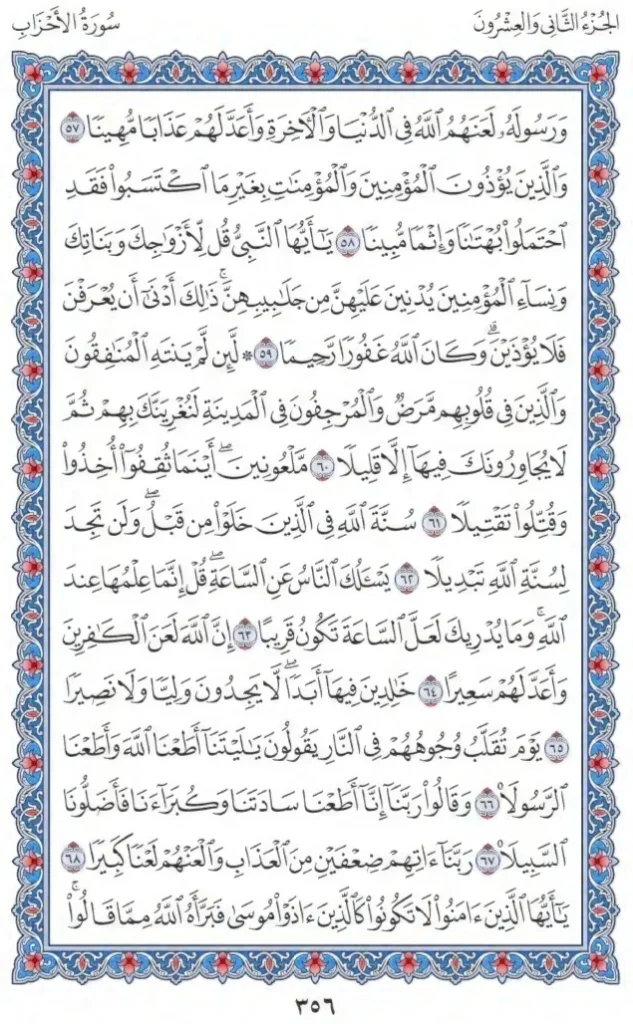 الجُزْءُ الثَّانِي وَالعِشْرُونَ سُورَةُ الأَحْزَابِ
وَرَسُولَهُۥ لَعَنَهُمُ ٱللَّهُ فِى ٱلدُّنْيَا وَٱلْـَٔاخِرَةِ وَأَعَدَّ لَهُمْ عَذَابًا مُّهِينًا ٥٧
وَٱلَّذِينَ يُؤْذُونَ ٱلْمُؤْمِنِينَ وَٱلْمُؤْمِنَـٰتِ بِغَيْرِ مَا ٱكْتَسَبُوا۟ فَقَدِ
ٱحْتَمَلُوا۟ بُهْتَـٰنًا وَإِثْمًا مُّبِينًا ٥٨ يَـٰٓأَيُّهَا ٱلنَّبِىُّ قُل لِّأَزْوَٰجِكَ وَبَنَاتِكَ
وَنِسَآءِ ٱلْمُؤْمِنِينَ يُدْنِينَ عَلَيْهِنَّ مِن جَلَـٰبِيبِهِنَّ ۚ ذَٰلِكَ أَدْنَىٰٓ أَن يُعْرَفْنَ
فَلَا يُؤْذَيْنَ ۗ وَكَانَ ٱللَّهُ غَفُورًا رَّحِيمًا ٥٩ * لَّئِن لَّمْ يَنتَهِ ٱلْمُنَـٰفِقُونَ
وَٱلَّذِينَ فِى قُلُوبِهِم مَّرَضٌ وَٱلْمُرْجِفُونَ فِى ٱلْمَدِينَةِ لَنُغْرِيَنَّكَ بِهِمْ ثُمَّ
لَا يُجَاوِرُونَكَ فِيهَآ إِلَّا قَلِيلًا ٦٠ مَّلْعُونِينَ ۖ أَيْنَمَا ثُقِفُوٓا۟ أُخِذُوا۟
وَقُتِّلُوا۟ تَقْتِيلًا ٦١ سُنَّةَ ٱللَّهِ فِى ٱلَّذِينَ خَلَوْا۟ مِن قَبْلُ ۖ وَلَن تَجِدَ
لِسُنَّةِ ٱللَّهِ تَبْدِيلًا ٦٢ يَسْـَٔلُكَ ٱلنَّاسُ عَنِ ٱلسَّاعَةِ ۖ قُلْ إِنَّمَا عِلْمُهَا عِندَ
ٱللَّهِ ۚ وَمَا يُدْرِيكَ لَعَلَّ ٱلسَّاعَةَ تَكُونُ قَرِيبًا ٦٣ إِنَّ ٱللَّهَ لَعَنَ ٱلْكَـٰفِرِينَ
وَأَعَدَّ لَهُمْ سَعِيرًا ٦٤ خَـٰلِدِينَ فِيهَآ أَبَدًا ۖ لَّا يَجِدُونَ وَلِيًّا وَلَا نَصِيرًا
٦٥ يَوْمَ تُقَلَّبُ وُجُوهُهُمْ فِى ٱلنَّارِ يَقُولُونَ يَـٰلَيْتَنَآ أَطَعْنَا ٱللَّهَ وَأَطَعْنَا
ٱلرَّسُولَا۠ ٦٦ وَقَالُوا۟ رَبَّنَآ إِنَّآ أَطَعْنَا سَادَتَنَا وَكُبَرَآءَنَا فَأَضَلُّونَا
ٱلسَّبِيلَا۠ ٦٧ رَبَّنَآ ءَاتِهِمْ ضِعْفَيْنِ مِنَ ٱلْعَذَابِ وَٱلْعَنْهُمْ لَعْنًا كَبِيرًا ٦٨
يَـٰٓأَيُّهَا ٱلَّذِينَ ءَامَنُوا۟ لَا تَكُونُوا۟ كَٱلَّذِينَ ءَاذَوْا۟ مُوسَىٰ فَبَرَّأَهُ ٱللَّهُ مِمَّا قَالُوا۟ ۚ
٣٥٦